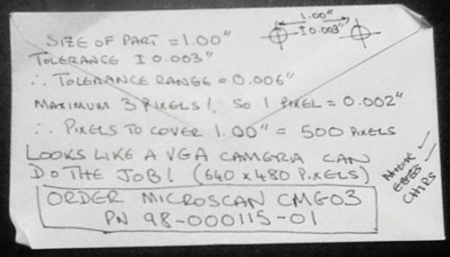 1.00"
± 0.003"
SIZE OF PART = 1.00"
TOLERANCE ± 0.003"
∴ TOLERANCE RANGE = 0.006"
MAXIMUM 3 PIXELS! SO 1 PIXEL = 0.002"
∴ PIXELS TO COVER 1.00" = 500 PIXELS
LOOKS LIKE A VGA CAMERA CAN
DO THE JOB! (640 x 480 PIXELS)
ORDER MICROSCAN CMG03
PN 98-000115-01
MILK
EGGS
CHIPS